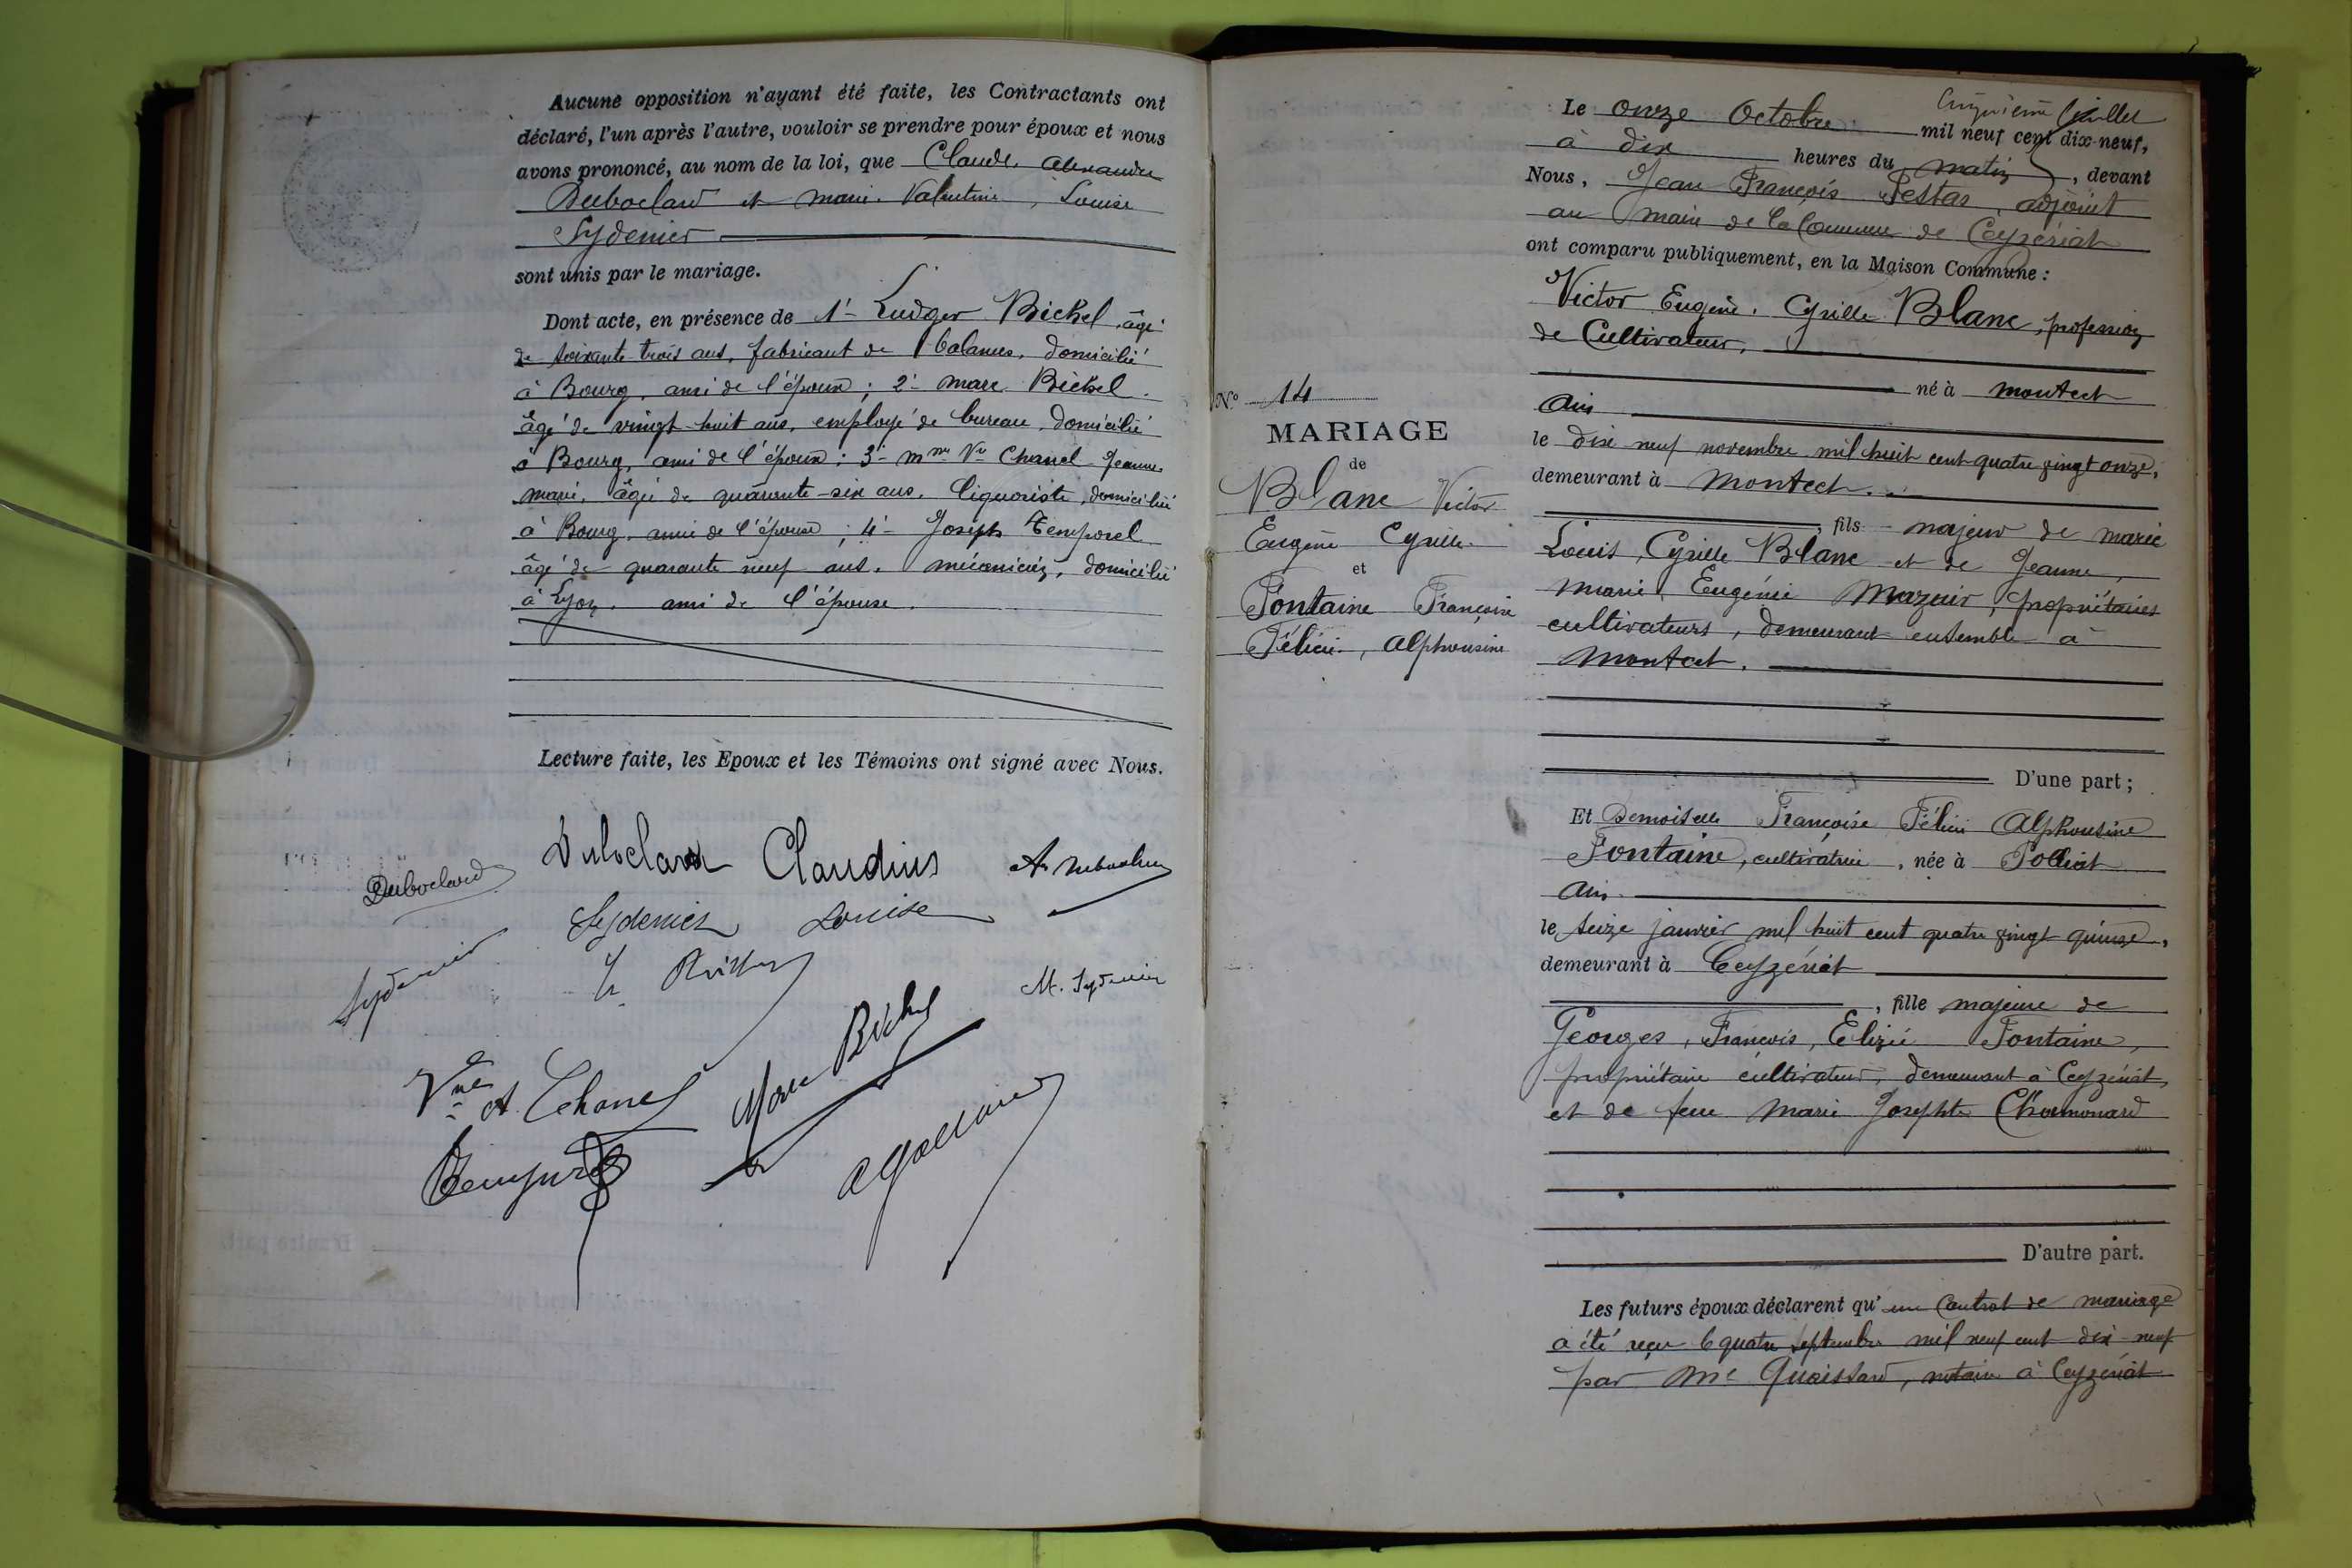 Aucune opposition n'ayant été faite, les Contractants ont
déclaré, l'un après l'autre, vouloir se prendre pour époux et nous
avons prononcé, au nom de la loi, que Claude, Alexandre
Duboclard et Marie, Valentine, Louise
Sydenier
sont unis par le mariage.
Dont acte, en présence de 1° Ludger Bickel, âgé
de soixante trois ans, fabricant de balances, domicilié
à Bourg, ami de l'époux ; 2° Marc Bickel
âgé de vingt-huit ans, employé de bureau, domicilié
à Bourg, ami de l'époux ; 3° Mme Ve Chanel Jeanne
Marie, âgée de quarante-six ans, liquoriste, domiciliée
à Bourg, amie de l'épouse ; 4° Joseph Temporel
âgé de quarante neuf ans, mécanicien, domicilié
à Lyon, ami de l'épouse.
Lecture faite, les Epoux et les Témoins ont signé avec Nous.
Duboclard Duboclard Claudius
Sydenier Louise
Sydenier M. Sydenier
Vve A. Chanel Marc Bickel
Cinquième feuillet
Le onze Octobre mil neuf cent dix-neuf,
à dix heures du matin, devant
Nous, Jean François Pestas, adjoint
au maire de la Commune de Ceyzériat
ont comparu publiquement, en la Maison Commune :
Victor Eugène, Cyrille Blanc, profession
de Cultivateur,
né à Montcet
Ain
le dix neuf novembre mil huit cent quatre vingt onze,
demeurant à Montcet.
N° 14
MARIAGE
de
Blanc Victor
Eugène Cyrille
et
Fontaine Françoise
Félicie, Alphonsine
, fils majeur de Marie
Louis, Cyrille Blanc et de Jeanne,
Marie, Eugénie Mazuir, propriétaires
cultivateurs, demeurant ensemble à
Montcet.
D'une part ;
Et Demoiselle Françoise Félicie Alphonsine
Fontaine, cultivatrice, née à Polliat
Ain
le seize janvier mil huit cent quatre vingt quinze,
demeurant à Ceyzériat
, fille majeure de
Georges, François, Elizé Fontaine,
propriétaire cultivateur, demeurant à Ceyzériat,
et de feue Marie Josephte Chamonard
D'autre part.
Les futurs époux déclarent qu'un Contrat de mariage
a été reçu le quatre septembre mil neuf cent dix-neuf
par Me Quaissard, notaire à Ceyzériat